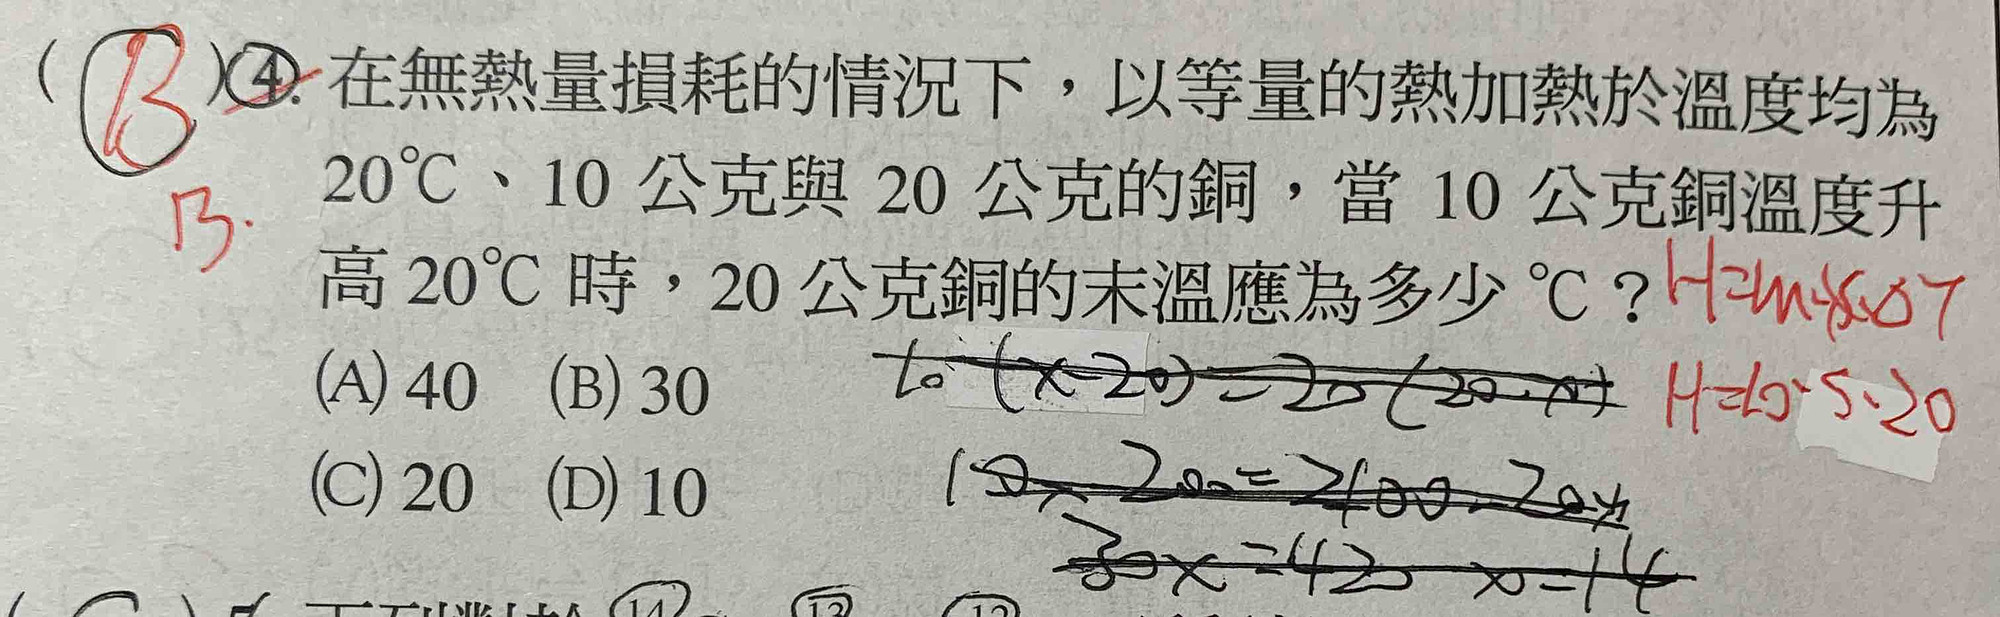 ( B )④. 在無熱量損耗的情況下，以等量的熱加熱於溫度均為
B. 20℃、10 公克與 20 公克的銅，當 10 公克銅溫度升
高 20℃ 時，20 公克銅的末溫應為多少 ℃？ H=m·s·ΔT
(A) 40 (B) 30 10 (x-20) = 20 (20-x) H=10·S·20
(C) 20 (D) 10
30x=420 x=14